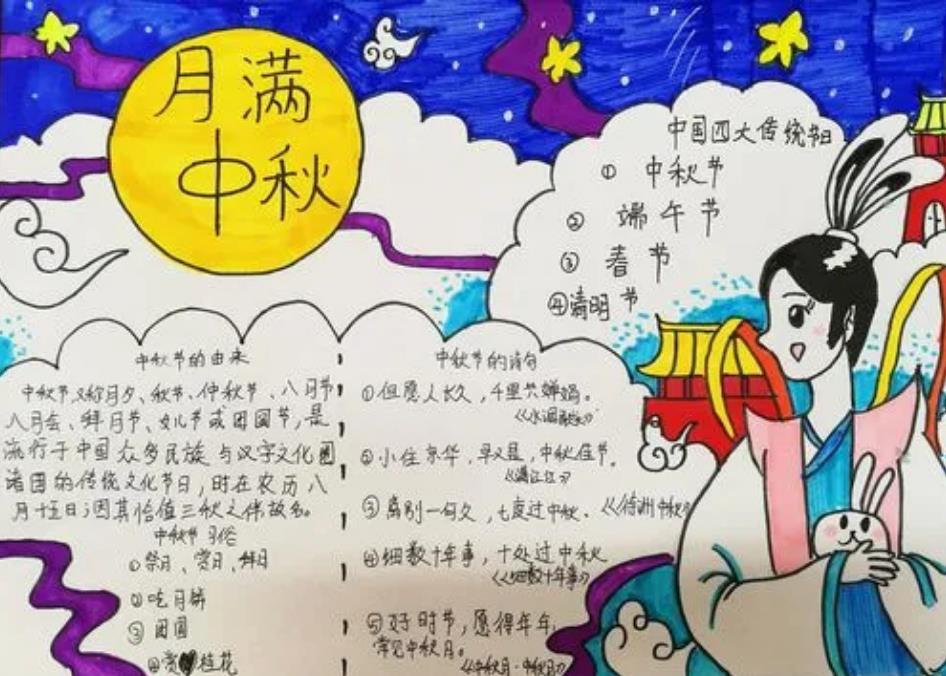 月满
中秋
中国四大传统节日
① 中秋节
② 端午节
③ 春节
④清明节
中秋节的由来
中秋节又称月夕、秋节、仲秋节、八月节
八月会、拜月节、女儿节或团圆节，是
流行于中国众多民族与汉字文化圈
诸国的传统文化节日，时在农历八
月十五日；因其恰值三秋之半故名。
中秋节习俗
①祭月、赏月、拜月
②吃月饼
③ 团圆
④赏桂花
中秋节的诗句
①但愿人长久，千里共婵娟。
《水调歌头》
②小住京华，早又是，中秋佳节。
《满江江》
③离别一何久，七度过中秋。《徐州中秋》
④细数十年事，十处过中秋
《细数十年事》
⑤好时节，愿得年年，
常见中秋月。
《中秋月·中秋月》